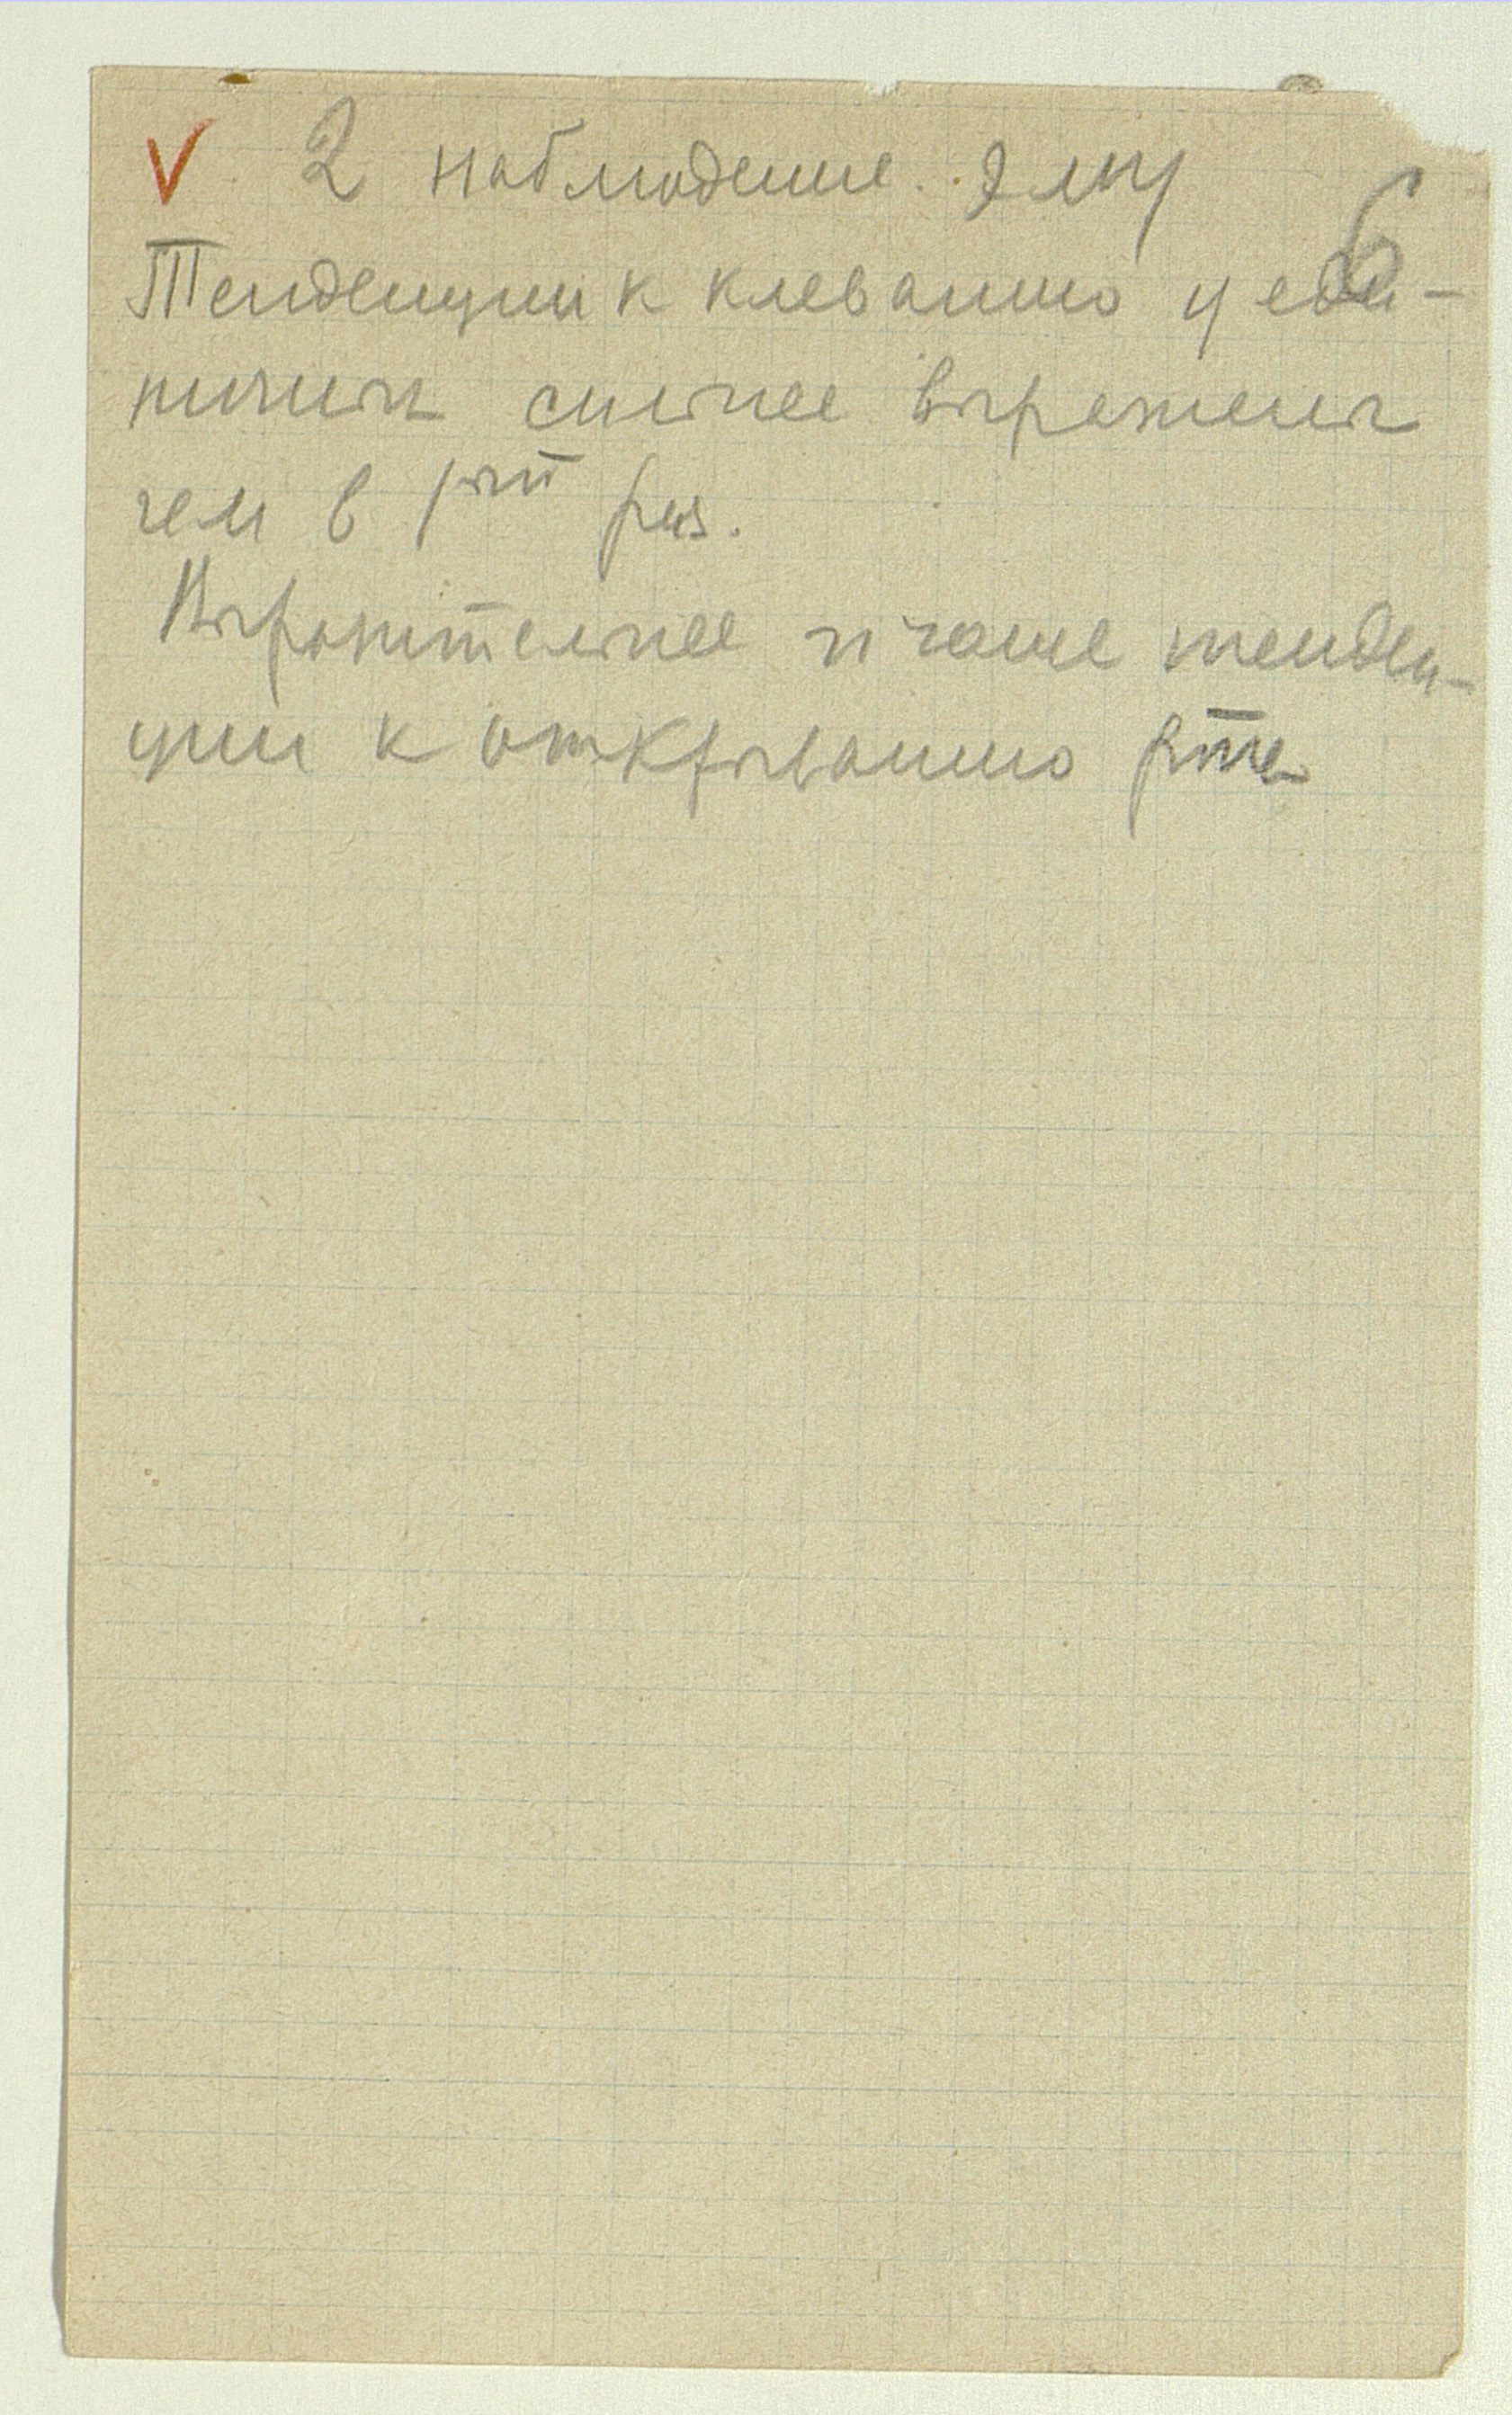 ✓ 2 наблюдение.
6
Тенденции к клеванию у еди-
ничн сильнее выражены
чем в 1ый раз.
Выразительнее и чаще тенден-
ции к открыванию рта